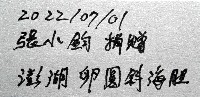 2022/07/01
張小鈞 捐贈
澎湖 卵圓斜海胆